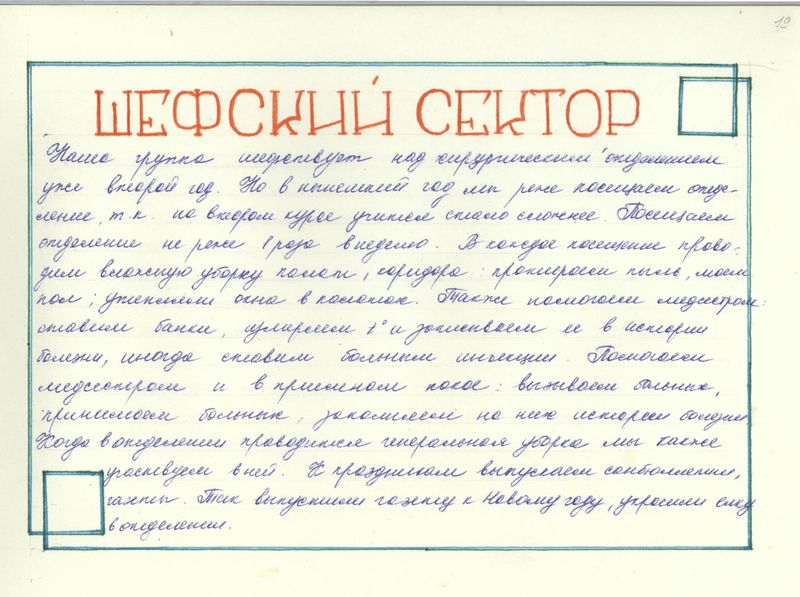 19
ШЕФСКИЙ СЕКТОР
Наша группа шефствует над хирургическим отделением
уже второй год. Но в нынешний год мы реже посещаем отде-
ление, т.к. на втором курсе учиться стало сложнее. Посещаем
отделение не реже 1 раза в неделю. В каждое посещение прово-
дим влажную уборку палат, коридора: протираем пыль, моем
пол; утепляем окна в палатах. Также помогаем медсестрам:
ставим банки, измеряем t° и записываем ее в истории
болезни, иногда ставим больным инъекции. Помогаем
медсестрам и в приемном покое: вызываем больных,
принимаем больных, заполняем на них истории болезни.
Когда в отделении проводится генеральная уборка мы также
участвуем в ней. К праздникам выпускаем санбюллетени,
газеты. Так выпустили газету к Новому году, украсили елку
в отделении.